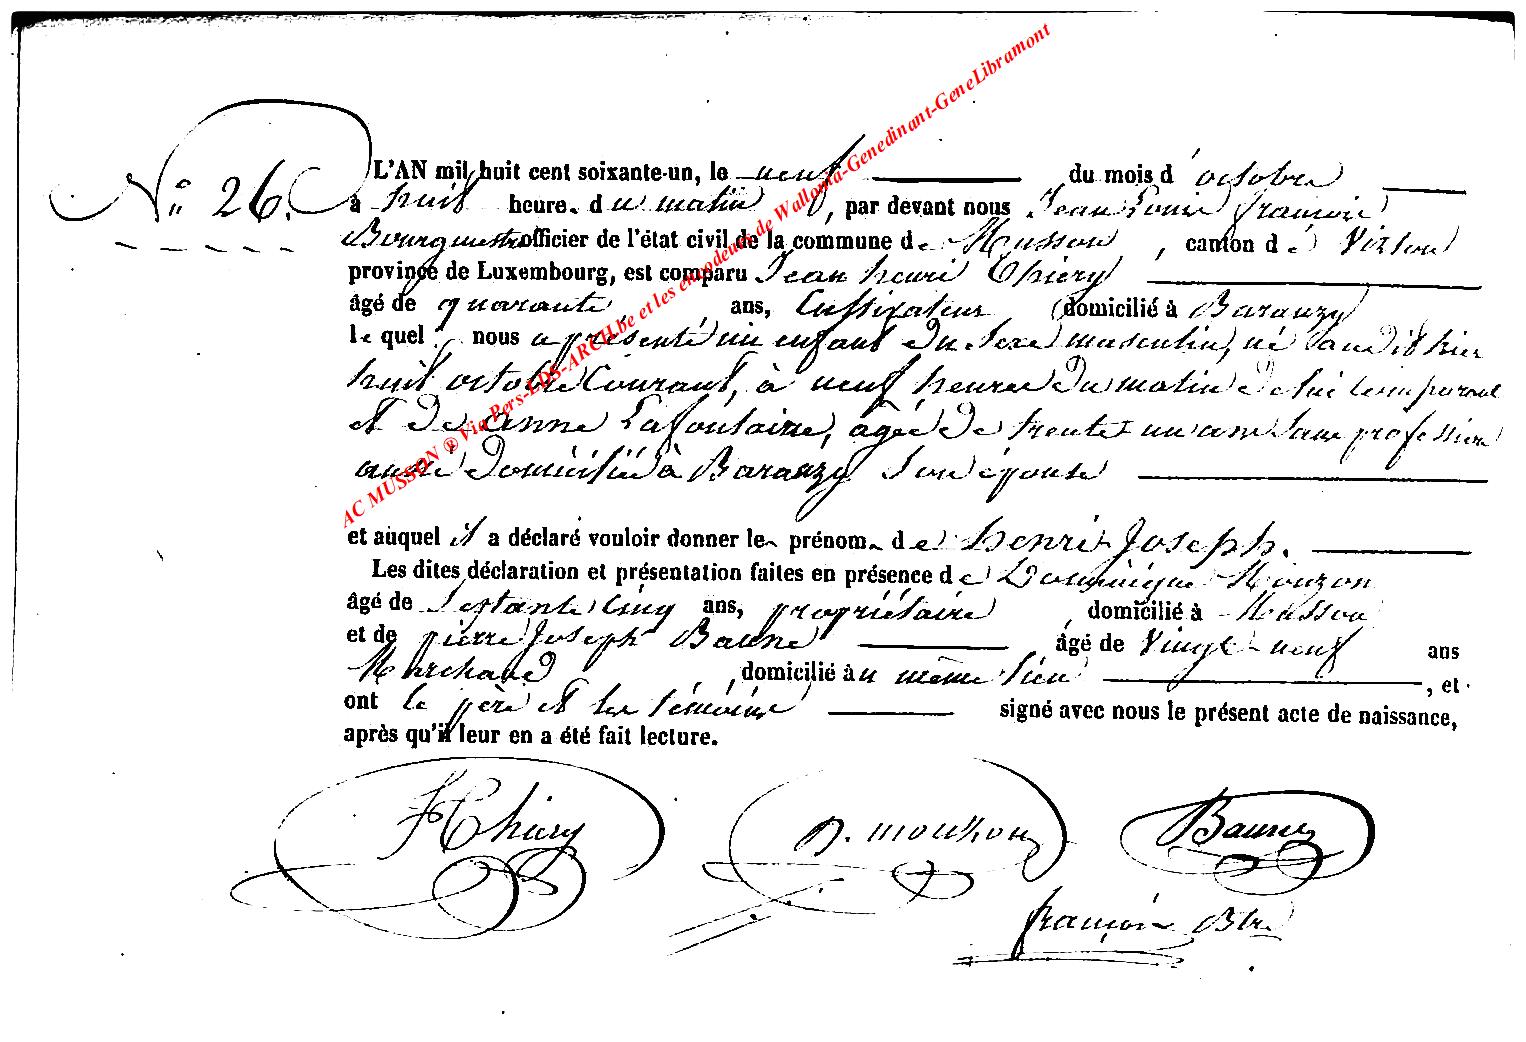 AC MUSSON ® Via Pers-LDS-ARCH.be et les encodeurs de Wallonia-Genedinant-GeneLibramont
N° 26.
L'AN mil huit cent soixante-un, le neuf du mois d'octobre
à huit heure. du matin, par devant nous Jean Louis françois
Bourgmestre officier de l'état civil de la commune de Musson, canton de Virton
province de Luxembourg, est comparu Jean henri Thiery
âgé de quarante ans, Cultivateur domicilié à Baranzy
le quel nous a présenté un enfant du sexe masculin, né hier
huit octobre Courant, à neuf heures du matin de lui comparant
et de Anne Lafontaine, âgée de trente un ans sans profession
aussi domiciliée à Baranzy Son épouse
et auquel il a déclaré vouloir donner le prénom de henri Joseph.
Les dites déclaration et présentation faites en présence de Dominique Mouzon
âgé de Septante Cinq ans, propriétaire, domicilié à Musson
et de pierre Joseph Baune âgé de Vingt-neuf ans
Marchand, domicilié au même lieu, et
ont le père et les témoins signé avec nous le présent acte de naissance,
après qu'il leur en a été fait lecture.
JHThiery D. mouzon Baune
françois Btre